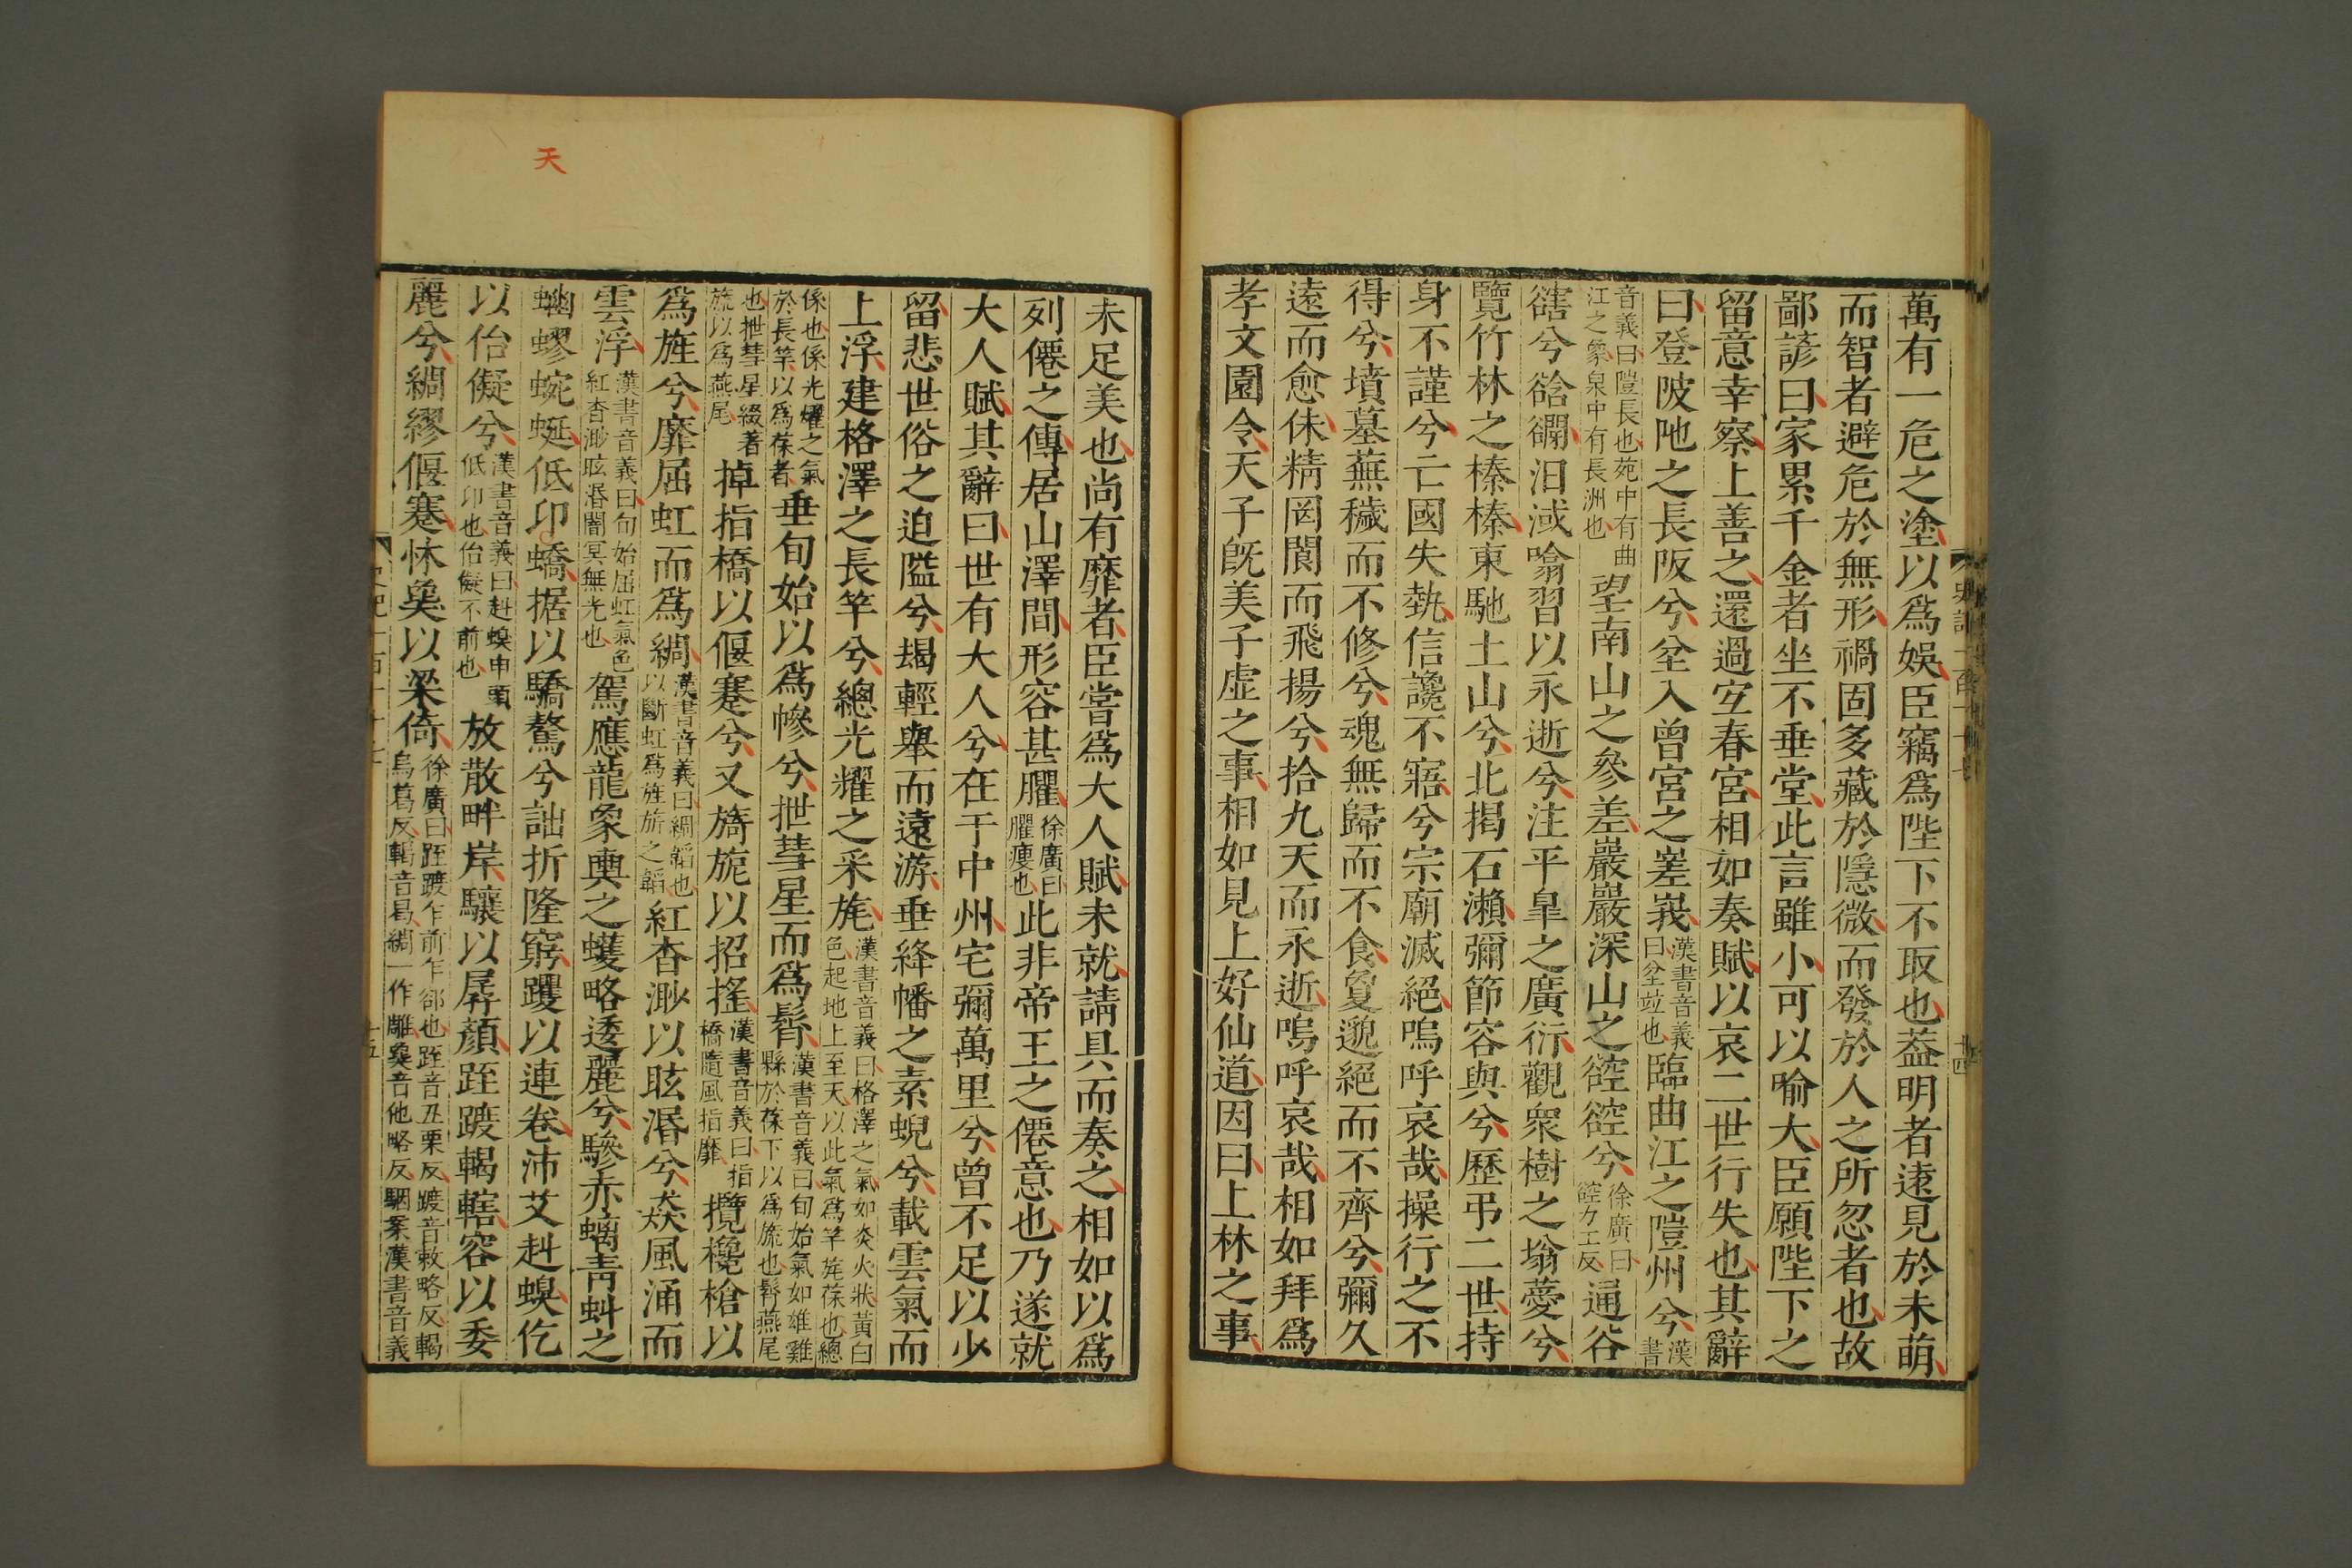 萬有一危之塗以爲娛臣竊爲陛下不取也葢明者逺見於未萌
而智者避危於無形禍固多藏於隱微而發於人之所忽者也故
鄙諺曰家累千金者坐不垂堂此言雖小可以喻大臣願陛下之
留意幸察上善之還過宐春宮相如奏賦以哀二世行失也其辭
曰登陂阤之長阪兮坌入曾宮之嵳峩漢書音義曰坌竝也臨曲江之隑州兮漢書
音義曰隑長也苑中有曲江之象泉中有長洲也望南山之參差巖巖深山之谾谾兮徐廣曰谾力工反通谷
豁兮谽𧯆汨淢噏習以永逝兮注平臯之廣衍觀衆樹之塕薆兮
覽竹林之榛榛東馳土山兮北揭石瀨彌節容與兮歷弔二世持
身不謹兮亡國失埶信讒不寤兮宗廟滅絕嗚呼哀哉操行之不
得兮墳墓蕪穢而不修兮魂無歸而不食夐邈絕而不齊兮彌久
遠而愈佅精罔閬而飛揚兮拾九天而永逝嗚呼哀哉相如拜爲
孝文園令天子旣美子虛之事相如見上好仙道因曰上林之事
未足美也尚有靡者臣嘗爲大人賦未就請具而奏之相如以爲
列僊之傳居山澤間形容甚臞徐廣曰臞瘦也此非帝王之僊意也乃遂就
大人賦其辭曰世有大人兮在于中州宅彌萬里兮曾不足以少
留悲世俗之迫隘兮朅輕舉而遠游垂絳幡之素蜺兮載雲氣而
上浮建格澤之長竿兮總光耀之采旄漢書音義曰格澤之氣如炎火狀黃白色起地上至天以此氣爲竿旄葆也總
係也係光燿之氣於長竿以爲葆者垂旬始以爲幓兮抴彗星而爲髾漢書音義曰旬始氣如雄雞縣於葆下以爲旒也髾燕尾
也抴彗星綴著旒以爲燕尾掉指橋以偃蹇兮又旖旎以招搖漢書音義曰指橋隨風指靡攬欃槍以
爲旌兮靡屈虹而爲綢漢書音義曰綢韜也以斷虹爲旌旂之韜紅杳渺以眩湣兮猋風涌而
雲浮漢書音義曰旬始屈虹氣色紅杳渺眩湣闇冥無光也駕應龍象輿之蠖略逶麗兮驂赤螭青虯之
蚴蟉蜿蜒低卬蟜据以驕驁兮詘折隆窮蠼以連卷沛艾赳螑仡
以佁儗兮漢書音義曰赳螑申頸低卬也佁儗不前也放散畔岸驤以孱顏跮踱輵轄容以委
麗兮綢繆偃蹇怵㚟以梁倚徐廣曰跮踱乍前乍卻也跮音丑栗反踱音敕略反輵烏葛反輵音曷綢一作雕㚟音他略反駰案漢書音義
史記一百一十七
十四
十五
天